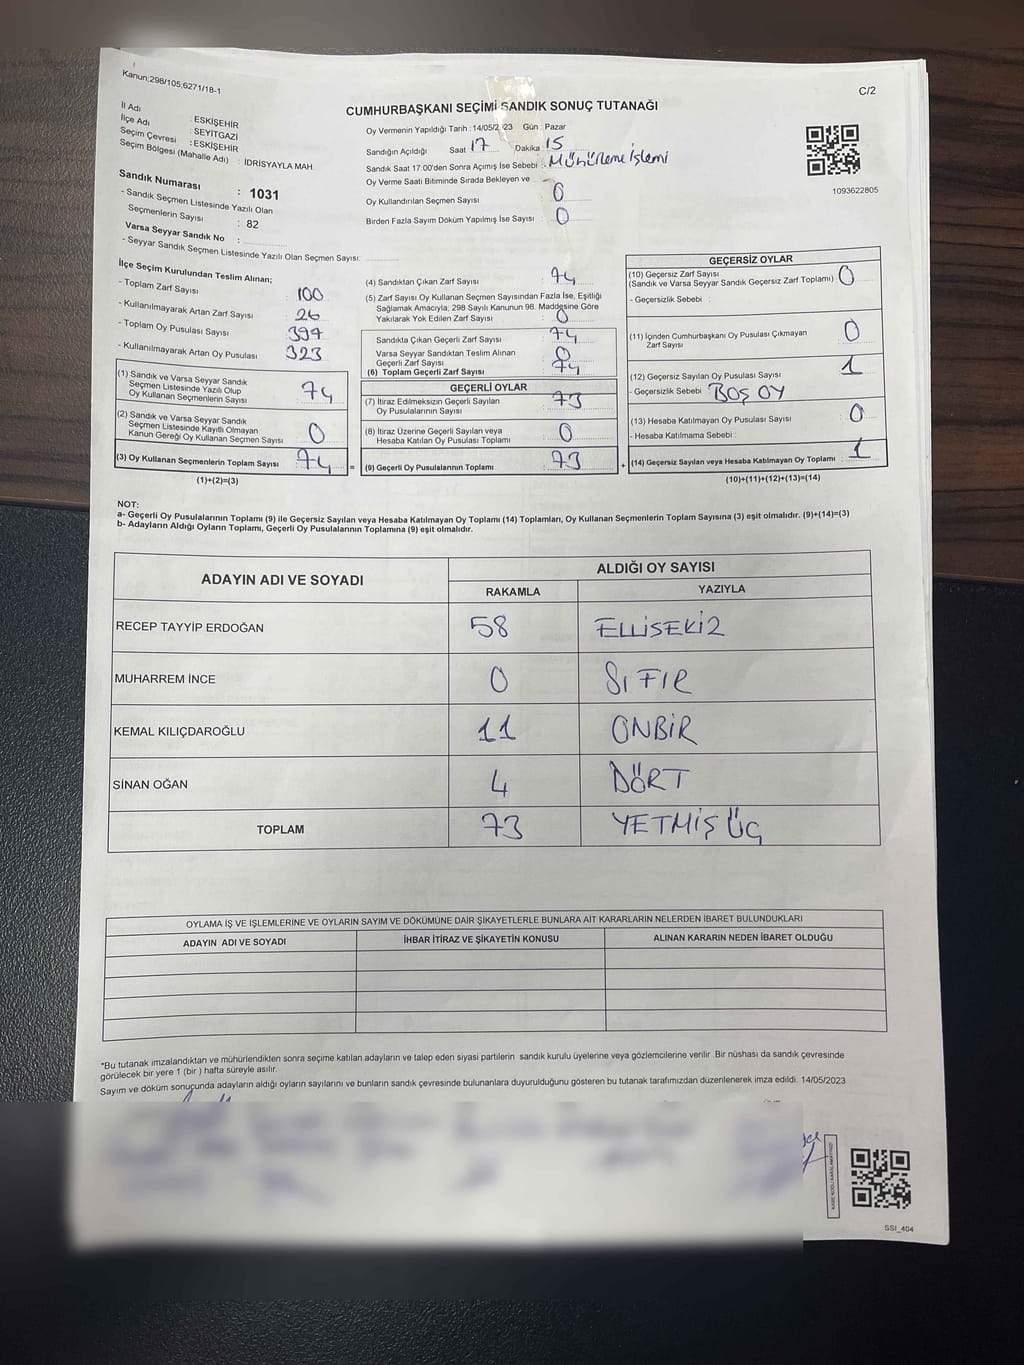 Kanun;298/105;6271/18-1
C/2
CUMHURBAŞKANI SEÇİMİ SANDIK SONUÇ TUTANAĞI
İl Adı : ESKİŞEHİR
İlçe Adı : SEYİTGAZİ
Seçim Çevresi : ESKİŞEHİR
Seçim Bölgesi (Mahalle Adı) : İDRİSYAYLA MAH.
Sandık Numarası : 1031
- Sandık Seçmen Listesinde Yazılı Olan
Seçmenlerin Sayısı : 82
Varsa Seyyar Sandık No :
- Seyyar Sandık Seçmen Listesinde Yazılı Olan Seçmen Sayısı:
Oy Vermenin Yapıldığı Tarih : 14/05/2023 Gün : Pazar
Sandığın Açıldığı Saat 17 Dakika 15
Sandık Saat 17.00'den Sonra Açımış İse Sebebi : Mühürleme işlemi
Oy Verme Saati Bitiminde Sırada Bekleyen ve
Oy Kullandırılan Seçmen Sayısı : 0
Birden Fazla Sayım Döküm Yapılmış İse Sayısı : 0
1093622805
İlçe Seçim Kurulundan Teslim Alınan;
- Toplam Zarf Sayısı : 100
- Kullanılmayarak Artan Zarf Sayısı : 26
- Toplam Oy Pusulası Sayısı : 397
- Kullanılmayarak Artan Oy Pusulası : 323
(1) Sandık ve Varsa Seyyar Sandık
Seçmen Listesinde Yazılı Olup
Oy Kullanan Seçmenlerin Sayısı : 74
(2) Sandık ve Varsa Seyyar Sandık
Seçmen Listesinde Kayıtlı Olmayan
Kanun Gereği Oy Kullanan Seçmen Sayısı : 0
(3) Oy Kullanan Seçmenlerin Toplam Sayısı : 74
(1)+(2)=(3)
(4) Sandıktan Çıkan Zarf Sayısı : 74
(5) Zarf Sayısı Oy Kullanan Seçmen Sayısından Fazla İse, Eşitliği
Sağlamak Amacıyla; 298 Sayılı Kanunun 98. Maddesine Göre
Yakılarak Yok Edilen Zarf Sayısı : 0
Sandıkta Çıkan Geçerli Zarf Sayısı : 74
Varsa Seyyar Sandıktan Teslim Alınan
Geçerli Zarf Sayısı : 0
(6) Toplam Geçerli Zarf Sayısı : 74
GEÇERLİ OYLAR
(7) İtiraz Edilmeksizin Geçerli Sayılan
Oy Pusulalarının Sayısı : 73
(8) İtiraz Üzerine Geçerli Sayılan veya
Hesaba Katılan Oy Pusulası Toplamı : 0
= (9) Geçerli Oy Pusulalarının Toplamı : 73
GEÇERSİZ OYLAR
(10) Geçersiz Zarf Sayısı
(Sandık ve Varsa Seyyar Sandık Geçersiz Zarf Toplamı) : 0
- Geçersizlik Sebebi :
(11) İçinden Cumhurbaşkanı Oy Pusulası Çıkmayan
Zarf Sayısı : 0
(12) Geçersiz Sayılan Oy Pusulası Sayısı : 1
- Geçersizlik Sebebi : BOŞ OY
(13) Hesaba Katılmayan Oy Pusulası Sayısı : 0
- Hesaba Katılmama Sebebi :
+ (14) Geçersiz Sayılan veya Hesaba Katılmayan Oy Toplamı : 1
(10)+(11)+(12)+(13)=(14)
NOT:
a- Geçerli Oy Pusulalarının Toplamı (9) ile Geçersiz Sayılan veya Hesaba Katılmayan Oy Toplamı (14) Toplamları, Oy Kullanan Seçmenlerin Toplam Sayısına (3) eşit olmalıdır. (9)+(14)=(3)
b- Adayların Aldığı Oyların Toplamı, Geçerli Oy Pusulalarının Toplamına (9) eşit olmalıdır.
ADAYIN ADI VE SOYADI ALDIĞI OY SAYISI
RAKAMLA YAZIYLA
RECEP TAYYİP ERDOĞAN 58 ELLİSEKİZ
MUHARREM İNCE 0 SIFIR
KEMAL KILIÇDAROĞLU 11 ONBİR
SİNAN OĞAN 4 DÖRT
TOPLAM 73 YETMİŞ ÜÇ
OYLAMA İŞ VE İŞLEMLERİNE VE OYLARIN SAYIM VE DÖKÜMÜNE DAİR ŞİKAYETLERLE BUNLARA AİT KARARLARIN NELERDEN İBARET BULUNDUKLARI
ADAYIN ADI VE SOYADI İHBAR İTİRAZ VE ŞİKAYETİN KONUSU ALINAN KARARIN NEDEN İBARET OLDUĞU
*Bu tutanak imzalandıktan ve mühürlendikten sonra seçime katılan adayların ve talep eden siyasi partilerin sandık kurulu üyelerine veya gözlemcilerine verilir. Bir nüshası da sandık çevresinde
görülecek bir yere 1 (bir ) hafta süreyle asılır.
Sayım ve döküm sonuçunda adayların aldığı oyların sayılarını ve bunların sandık çevresinde bulunanlara duyurulduğunu gösteren bu tutanak tarafımızdan düzenlenerek imza edildi. 14/05/2023
SSI_404